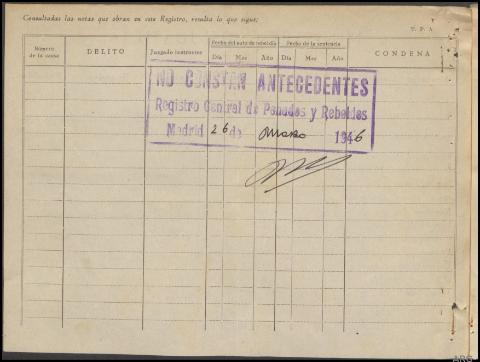 Consultadas las notas que obran en este Registro, resulta lo que sigue:
T. P. A.
Número de la causa
DELITO
Juzgado instructor
Fecha del auto de rebeldía
Día Mes Año
Fecha de la sentencia
Día Mes Año
CONDENA
NO CONSTAN ANTECEDENTES
Registro Central de Penados y Rebeldes
Madrid 26 de Marzo 1946